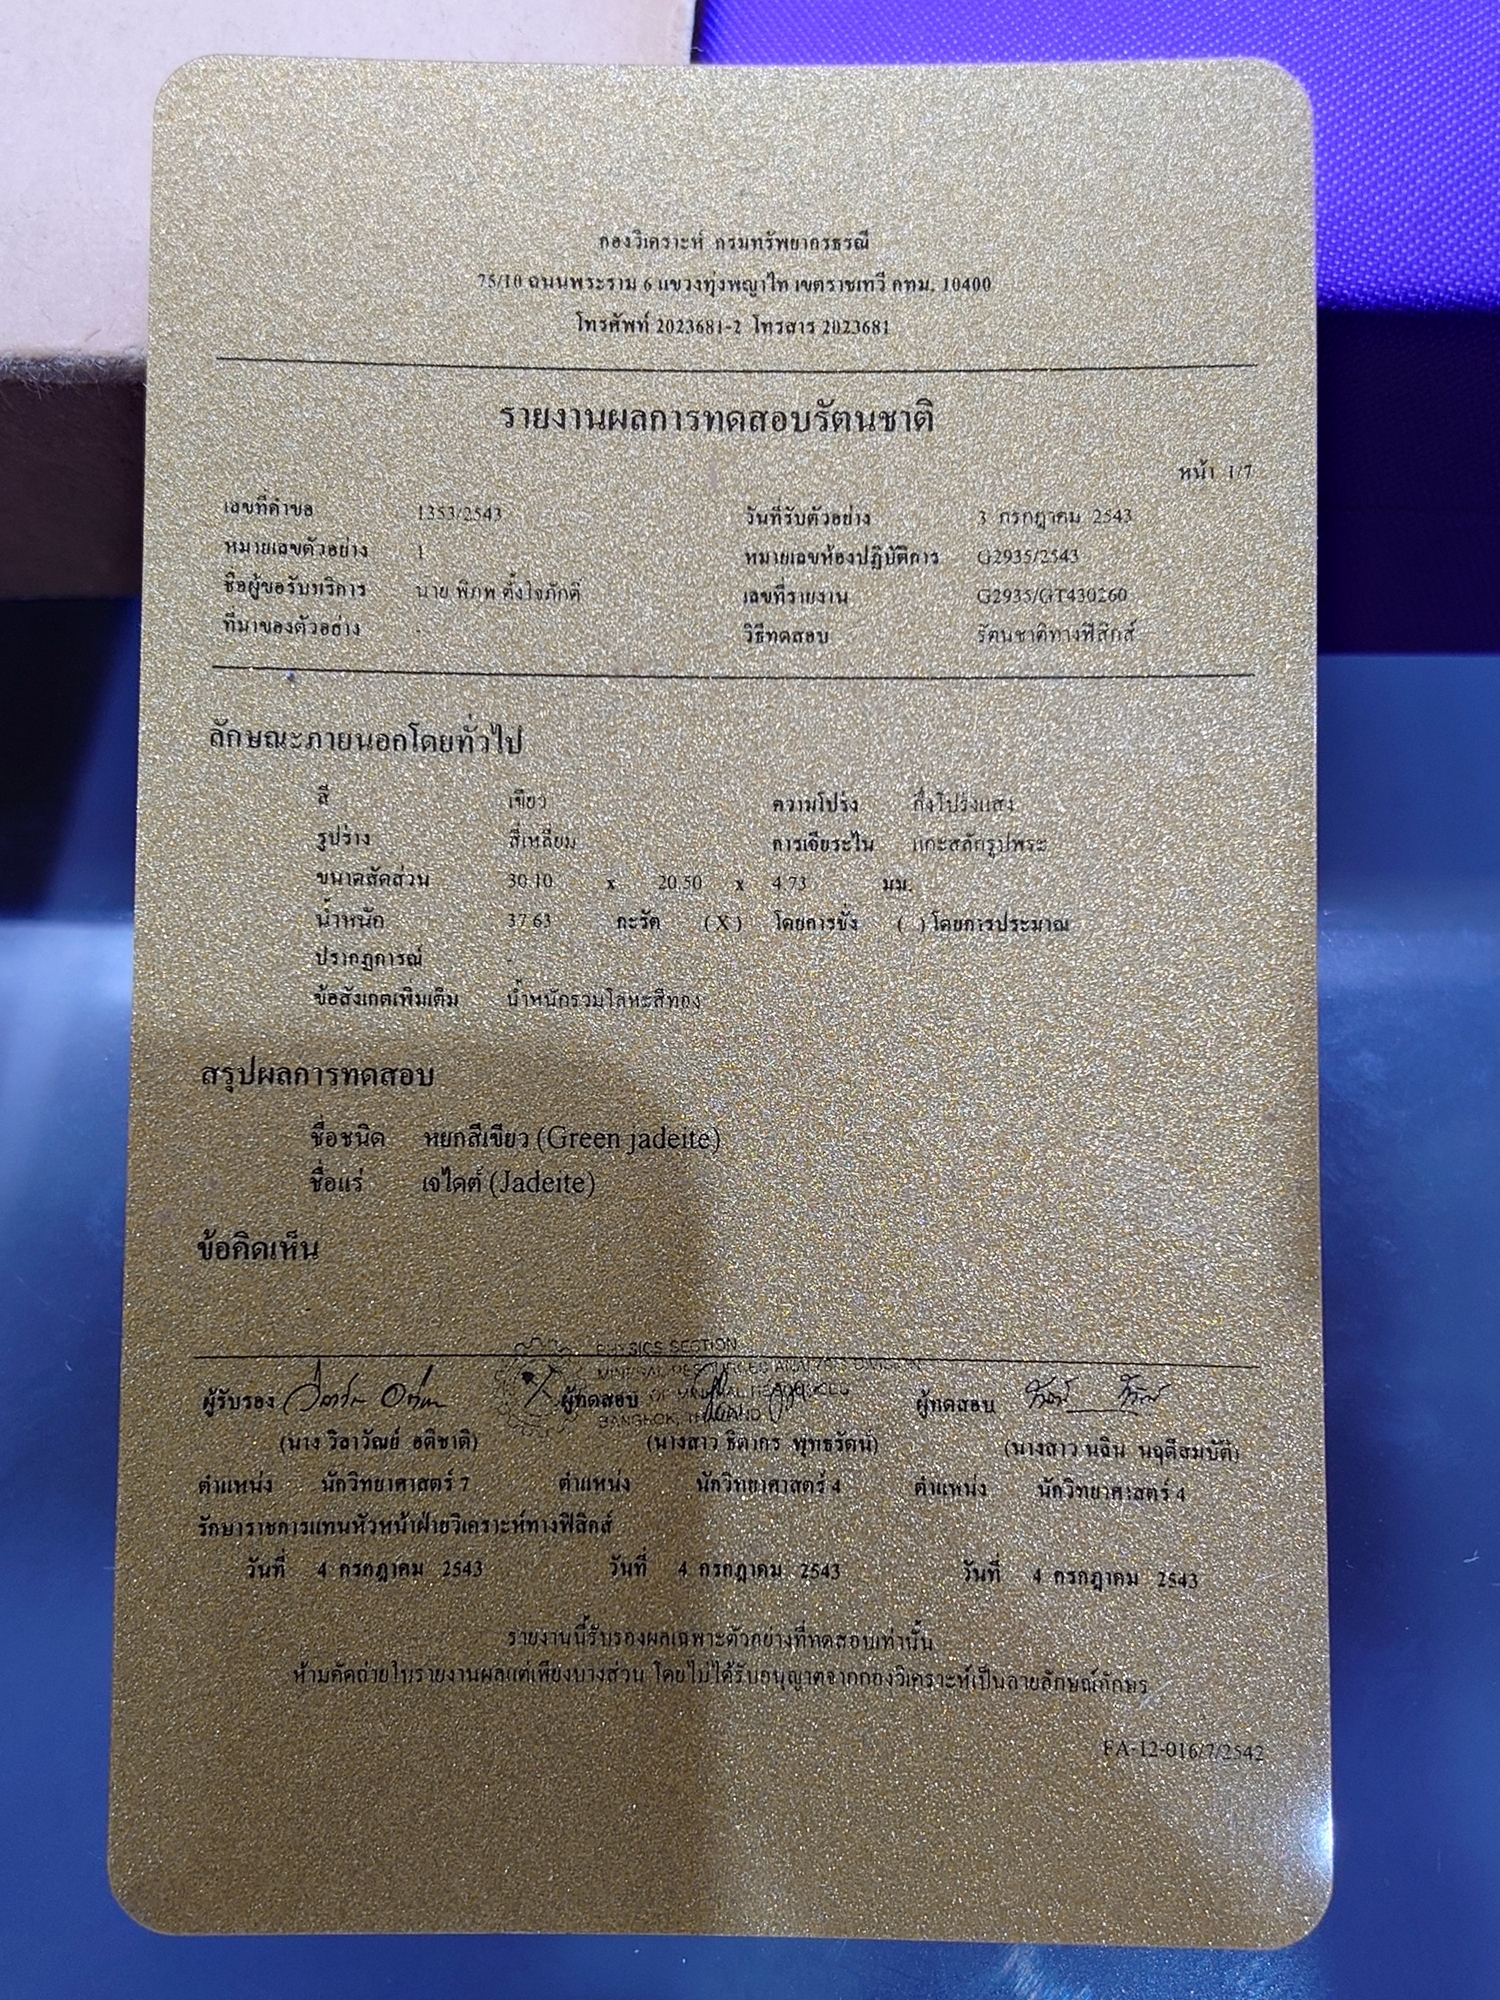 กองวิเคราะห์ กรมทรัพยากรธรณี
75/10 ถนนพระราม 6 แขวงทุ่งพญาไท เขตราชเทวี กทม. 10400
โทรศัพท์ 2023681-2 โทรสาร 2023681
รายงานผลการทดสอบรัตนชาติ
หน้า 1/7
เลขที่คำขอ 1353/2543 วันที่รับตัวอย่าง 3 กรกฎาคม 2543
หมายเลขตัวอย่าง 1 หมายเลขห้องปฏิบัติการ G2935/2543
ชื่อผู้ขอรับบริการ นาย พิภพ ตั้งใจภักดี เลขที่รายงาน G2935/GT430260
ที่มาของตัวอย่าง - วิธีทดสอบ รัตนชาติทางฟิสิกส์
ลักษณะภายนอกโดยทั่วไป
สี เขียว ความโปร่ง กึ่งโปร่งแสง
รูปร่าง สี่เหลี่ยม การเจียระไน แกะสลักรูปพระ
ขนาดสัดส่วน 30.10 x 20.50 x 4.73 มม.
น้ำหนัก 37.63 กะรัต (X) โดยการชั่ง ( ) โดยการประมาณ
ปรากฏการณ์ -
ข้อสังเกตเพิ่มเติม น้ำหนักรวมโลหะสีทอง
สรุปผลการทดสอบ
ชื่อชนิด หยกสีเขียว (Green jadeite)
ชื่อแร่ เจไดต์ (Jadeite)
ข้อคิดเห็น
PHYSICS SECTION
MINERAL RESOURCES ANALYSIS DIVISION
OF MINERAL RESOURCES
BANGKOK, THAILAND
ผู้รับรอง ผู้ทดสอบ ผู้ทดสอบ
(นาง วิลาวัณย์ อติชาติ) (นางสาว ธิดากร พุทธรัตน์) (นางสาว นลิน นฤดีสมบัติ)
ตำแหน่ง นักวิทยาศาสตร์ 7 ตำแหน่ง นักวิทยาศาสตร์ 4 ตำแหน่ง นักวิทยาศาสตร์ 4
รักษาราชการแทนหัวหน้าฝ่ายวิเคราะห์ทางฟิสิกส์
วันที่ 4 กรกฎาคม 2543 วันที่ 4 กรกฎาคม 2543 วันที่ 4 กรกฎาคม 2543
รายงานนี้รับรองผลเฉพาะตัวอย่างที่ทดสอบเท่านั้น
ห้ามคัดถ่ายใบรายงานผลแต่เพียงบางส่วน โดยไม่ได้รับอนุญาตจากกองวิเคราะห์เป็นลายลักษณ์อักษร
FA-12-016/7/2542